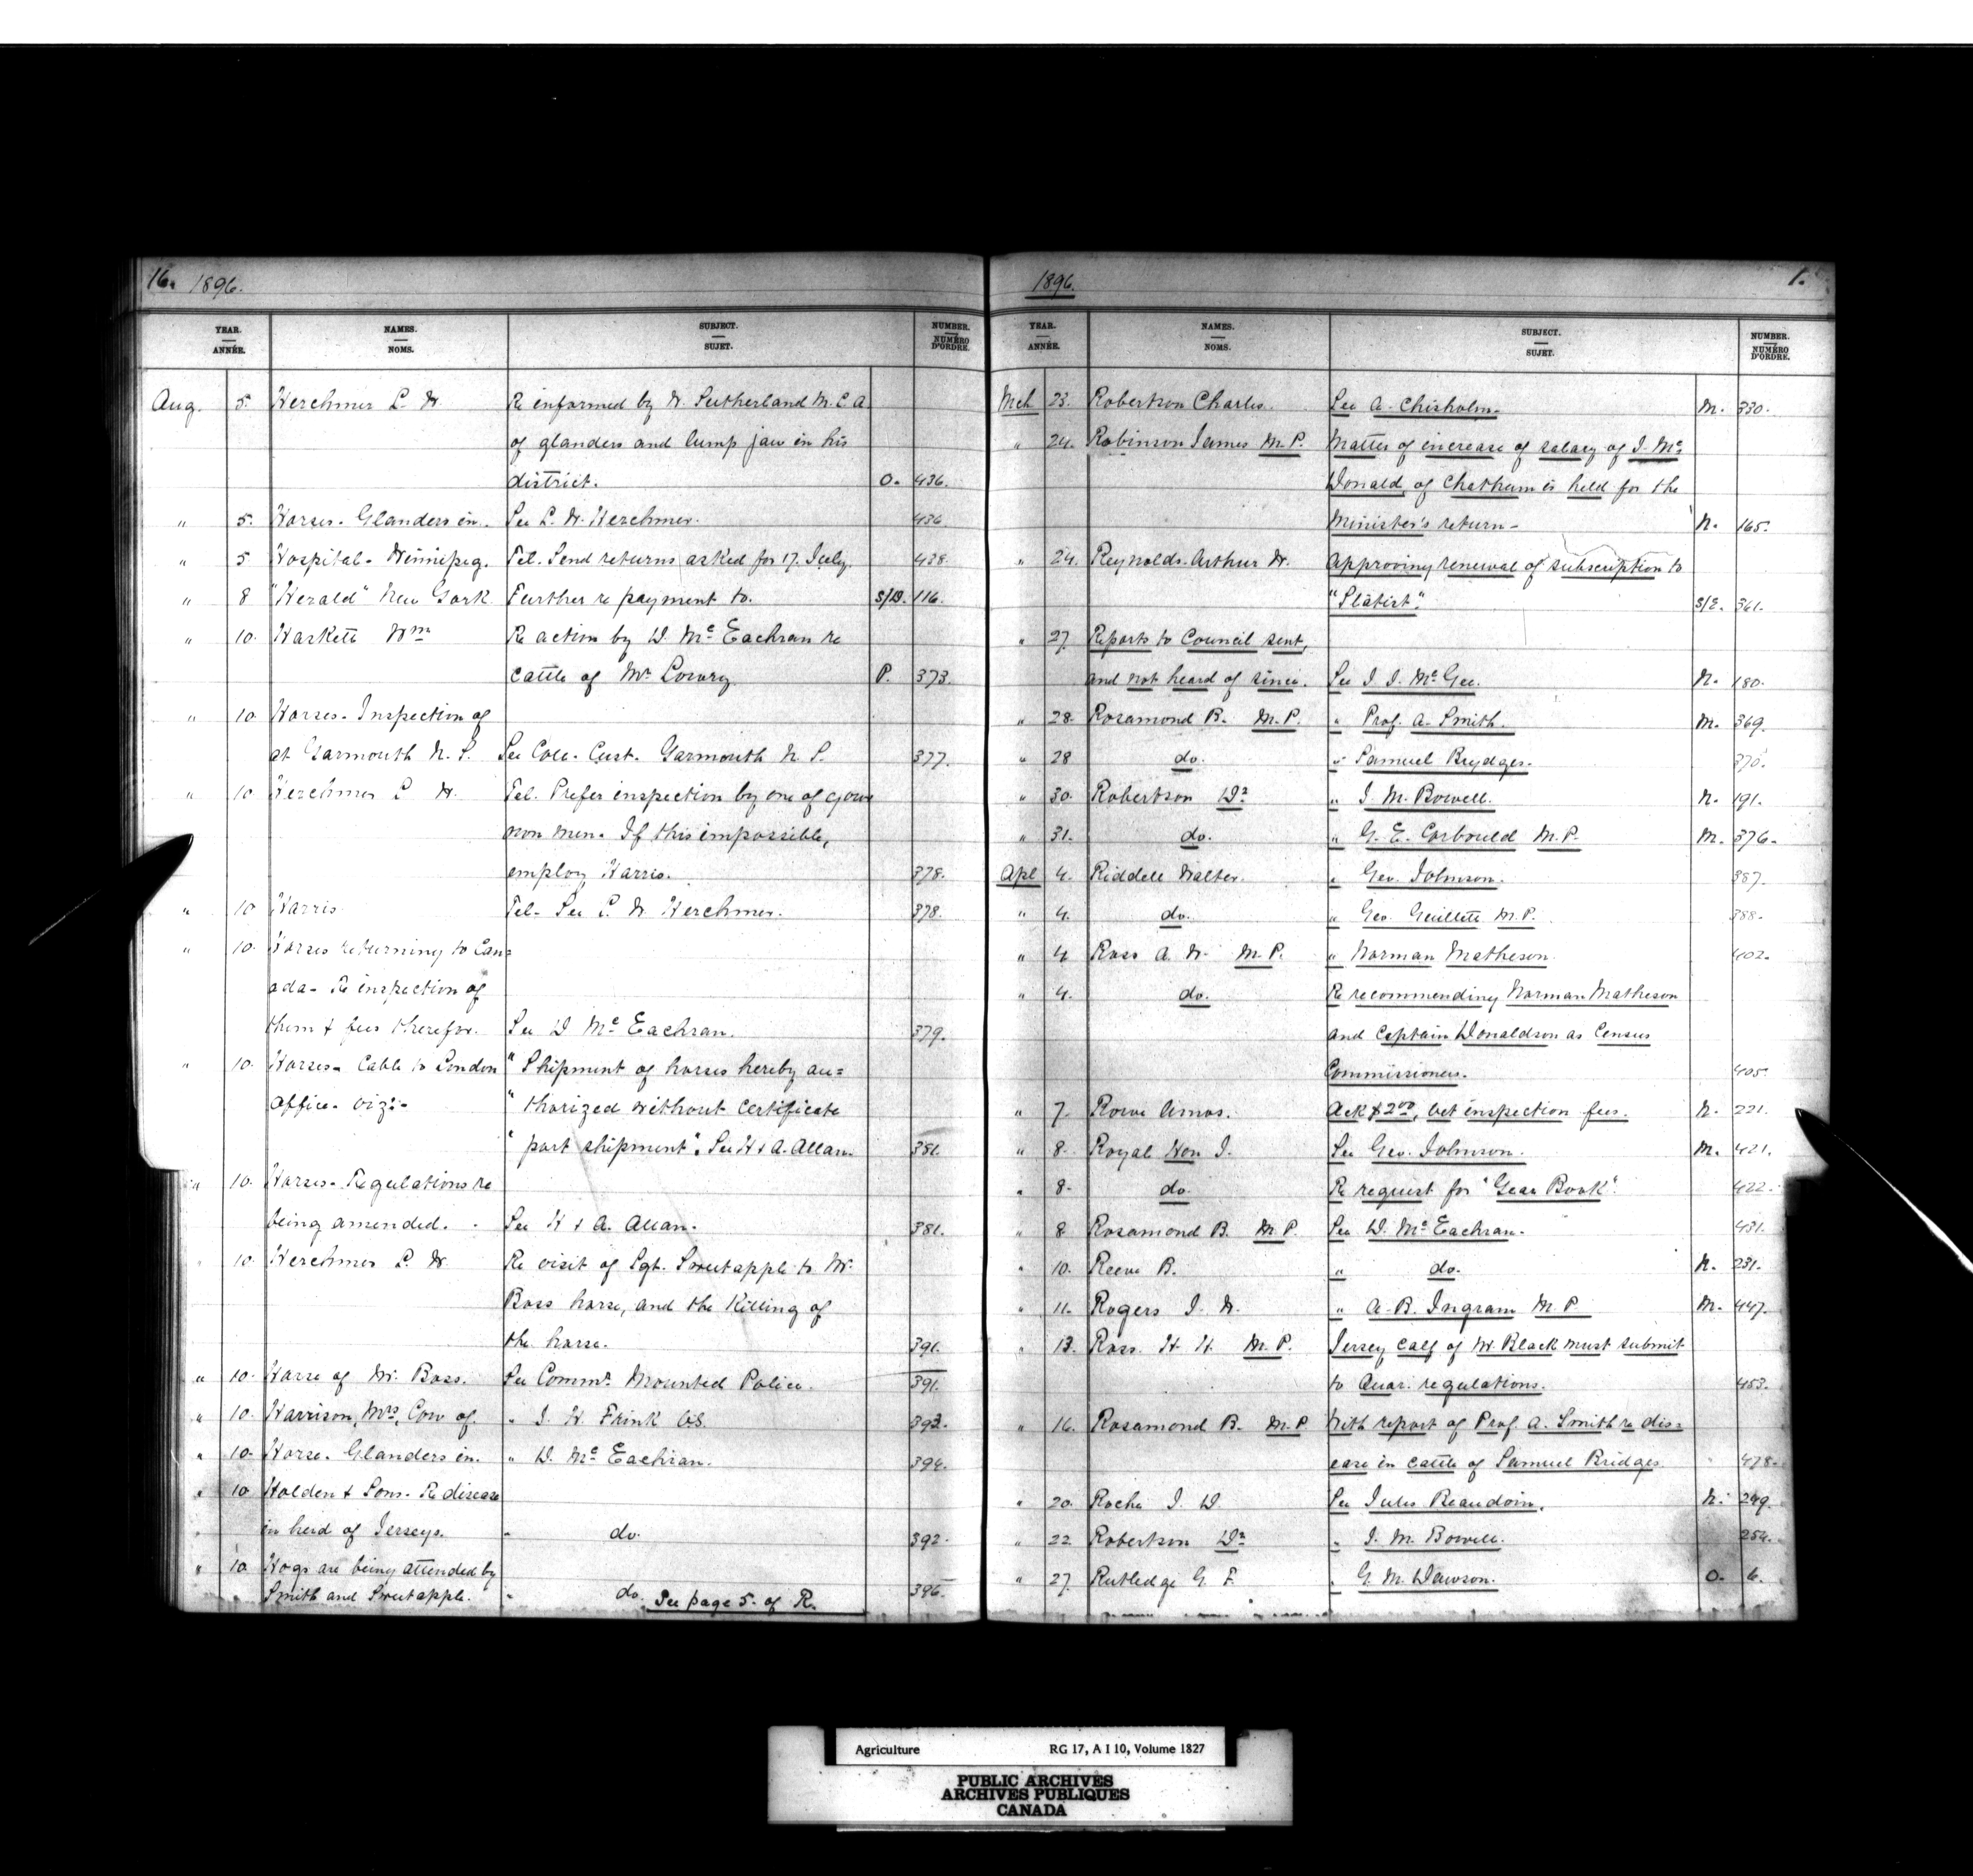 16. 1896.
YEAR. ANNÉE. NAMES. NOMS. SUBJECT. SUJET. NUMBER. NUMÉRO D'ORDRE.
Aug. 5. Herchmer L. W. Re informed by W. Sutherland M.L.A.
of glanders and lump jaw in his
district. O. 436.
" 5. Horses - Glanders in. See L. W. Herchmer. 436
" 5 Hospital - Winnipeg. Tel. Send returns asked for 17. July. 438.
" 8 "Herald" New York Further re payment to. S/D. 116.
" 10. Haskett Wm Re action by D. McEachran re
cattle of Mr Lowry P. 373.
" 10. Horses - Inspection of
at Yarmouth N. S. See Coll. Cust. Yarmouth N. S. 377.
" 10. Herchmer L. W. Tel. Prefer inspection by one of your
own men. If this impossible,
employ Harris. 378.
" 10 Harris Tel. See L. W. Herchmer. 378.
" 10. Horses returning to Can=
ada - Re inspection of
them & fees therefor. See D McEachran. 379.
" 10. Horses - Cable to London " Shipment of horses hereby au=
Office - viz:- " thorized without certificate
" part shipment". See H & A. Allan. 381.
" 10. Horses - Regulations re
being amended. See H & A. Allan. 381.
" 10. Herchmer L. W. Re visit of Sgt. Sweetapple to Mr.
Boss horse, and the killing of
the horse. 391.
" 10. Horse of Mr. Boss. See Commr. Mounted Police. 391.
" 10. Harrison, Mrs, Cow of. " J. H. Frink VS. 393.
" 10. Horse - Glanders in. " D. McEachran. 394.
" 10 Holden & Sons - Re disease
in herd of Jerseys. " do. 392.
" 10 Hogs are being attended by
Smith and Sweetapple. " do. 396.
See page 5. of R.
1896. 1.
YEAR. ANNÉE. NAMES. NOMS. SUBJECT. SUJET. NUMBER. NUMÉRO D'ORDRE.
Mch 23. Robertson Charles. See A. Chisholm. M. 330.
" 24. Robinson James M.P. Matter of increase of salary of J. Mc
Donald, of Chatham is held for the
Minister's return - N. 165.
" 24. Reynolds Arthur W. Approving renewal of subscription to
"Statist". S/E. 361.
" 27. Reports to Council sent,
and not heard of since. See J. J. McGee. N. 180.
" 28. Rosamond B. M.P. " Prof. A. Smith. M. 369.
" 28 do. " Samuel Brydges. 370.
" 30. Robertson Dr " J. M. Bowell. N. 191.
" 31. do. " G. E. Corbould M.P. M. 376.
Apl 4. Riddell Walter. " Geo. Johnson. 387.
" 4. do. " Geo. Guillett M.P. 388.
" 4 Ross A. W. M.P. " Norman Matheson. 402.
" 4. do. Re recommending Norman Matheson
and Captain Donaldson as Census
Commissioners. 405.
" 7. Rowe Amos. Ack $2.00, vet inspection fees. N. 221.
" 8. Royal Hon J. See Geo. Johnson. M. 421.
" 8. do. Re request for "Year Book". 422.
" 8 Rosamond B. M.P. See D. McEachran. 431.
" 10. Reeve B. " do. N. 231.
" 11. Rogers J. W. " A. B. Ingram M.P. M. 447.
" 13. Ross. H. H. M.P. Jersey calf of Mr Black must submit
to Quar. regulations. 453.
" 16. Rosamond B. M.P. With report of Prof. A. Smith re dis=
ease in cattle of Samuel Bridges. 478.
" 20. Roche J. D. See Jules Beaudoin. N. 249.
" 22. Robertson Dr " J. M. Bowell. 254.
" 27. Rutledge G. F. " G. M. Dawson. O. 6.
Agriculture RG 17, A I 10, Volume 1827
PUBLIC ARCHIVES
ARCHIVES PUBLIQUES
CANADA